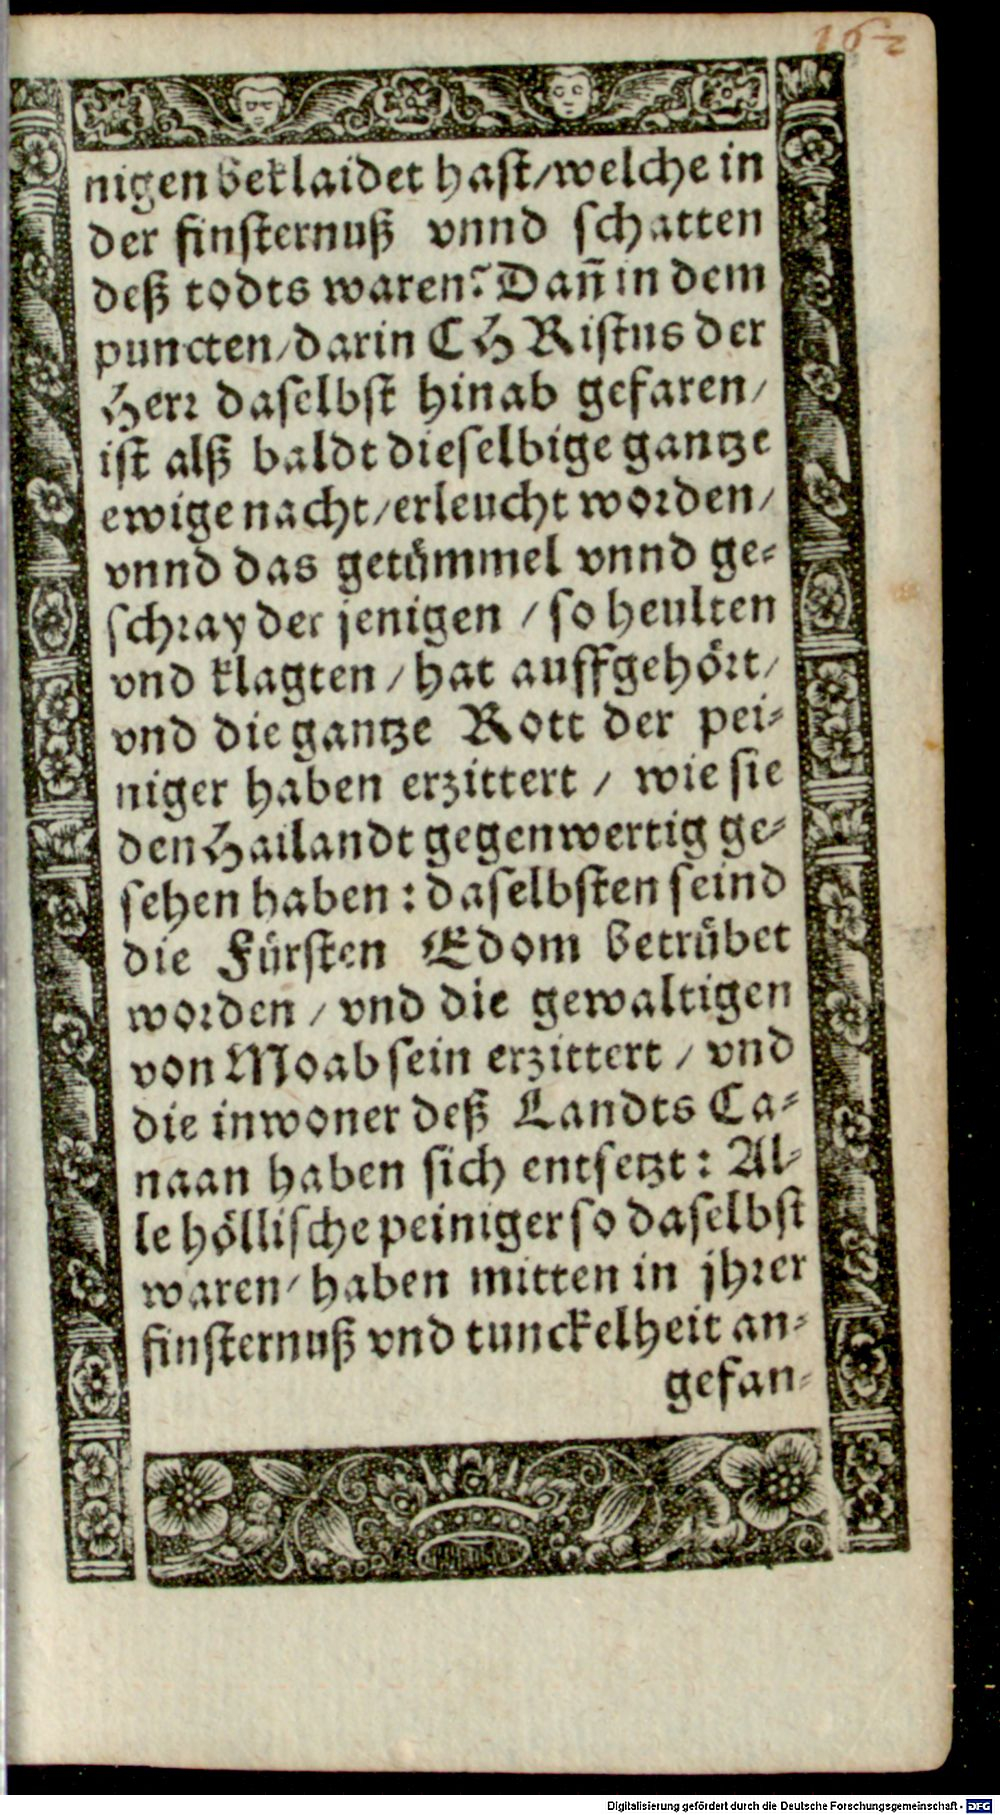 162
nigen beklaidet hast/welche in
der finsternuß vnnd schatten
deß todts waren? Dañ in dem
puncten/darin CHRistus der
Herr daselbst hinab gefaren/
ist alß baldt dieselbige gantze
ewige nacht/erleucht worden/
vnnd das getümmel vnnd ge-
schray der jenigen / so heulten
vnd klagten / hat auffgehört/
vnd die gantze Rott der pei-
niger haben erzittert / wie sie
den Hailandt gegenwertig ge-
sehen haben: daselbsten seind
die Fürsten Edom betrübet
worden / vnd die gewaltigen
von Moab sein erzittert / vnd
die inwoner deß Landts Ca-
naan haben sich entsetzt: Al-
le höllische peiniger so daselbst
waren/ haben mitten in jhrer
finsternuß vnd tunckelheit an-
gefan-
Digitalisierung gefördert durch die Deutsche Forschungsgemeinschaft - DFG